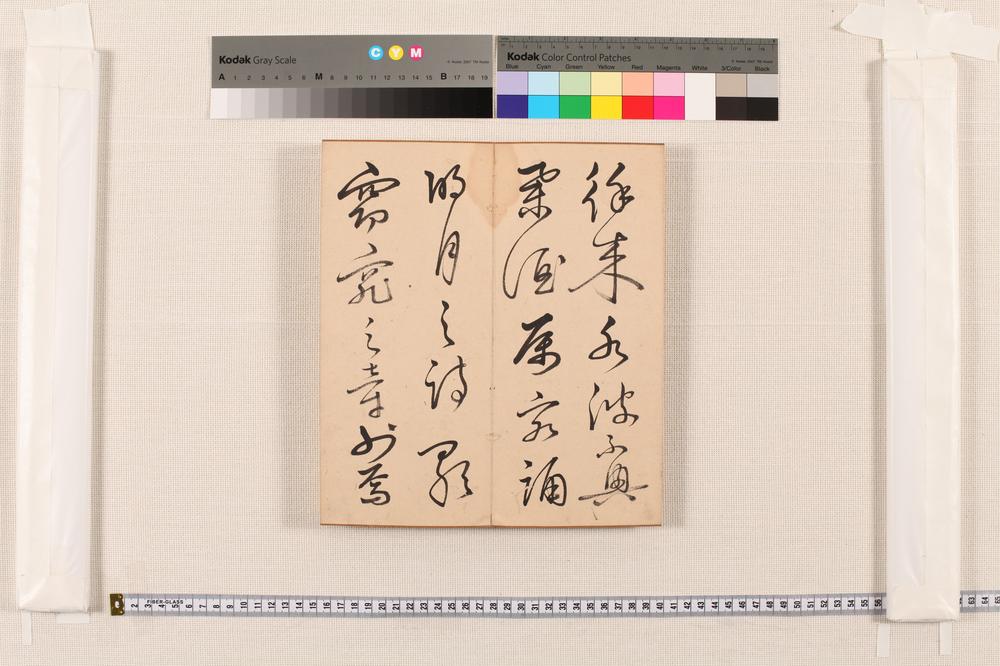 Kodak Gray Scale
C Y M
© Kodak, 2007 TM: Kodak
A 1 2 3 4 5 6 M 8 9 10 11 12 13 14 15 B 17 18 19
Kodak Color Control Patches
© Kodak, 2007 TM: Kodak
Blue Cyan Green Yellow Red Magenta White 3/Color Black
徐来水波不興
舉酒属客誦
明月之詩歌
窈窕之章少焉
FIBER-GLASS
2 3 4 5 6 7 8 9 10 11 12 13 14 15 16 17 18 19 20 21 22 23 24 25 26 27 28 29 30 31 32 33 34 35 36 37 38 39 40 41 42 43 44 45 46 47 48 49 50 51 52 53 54 55 56 63 64 65